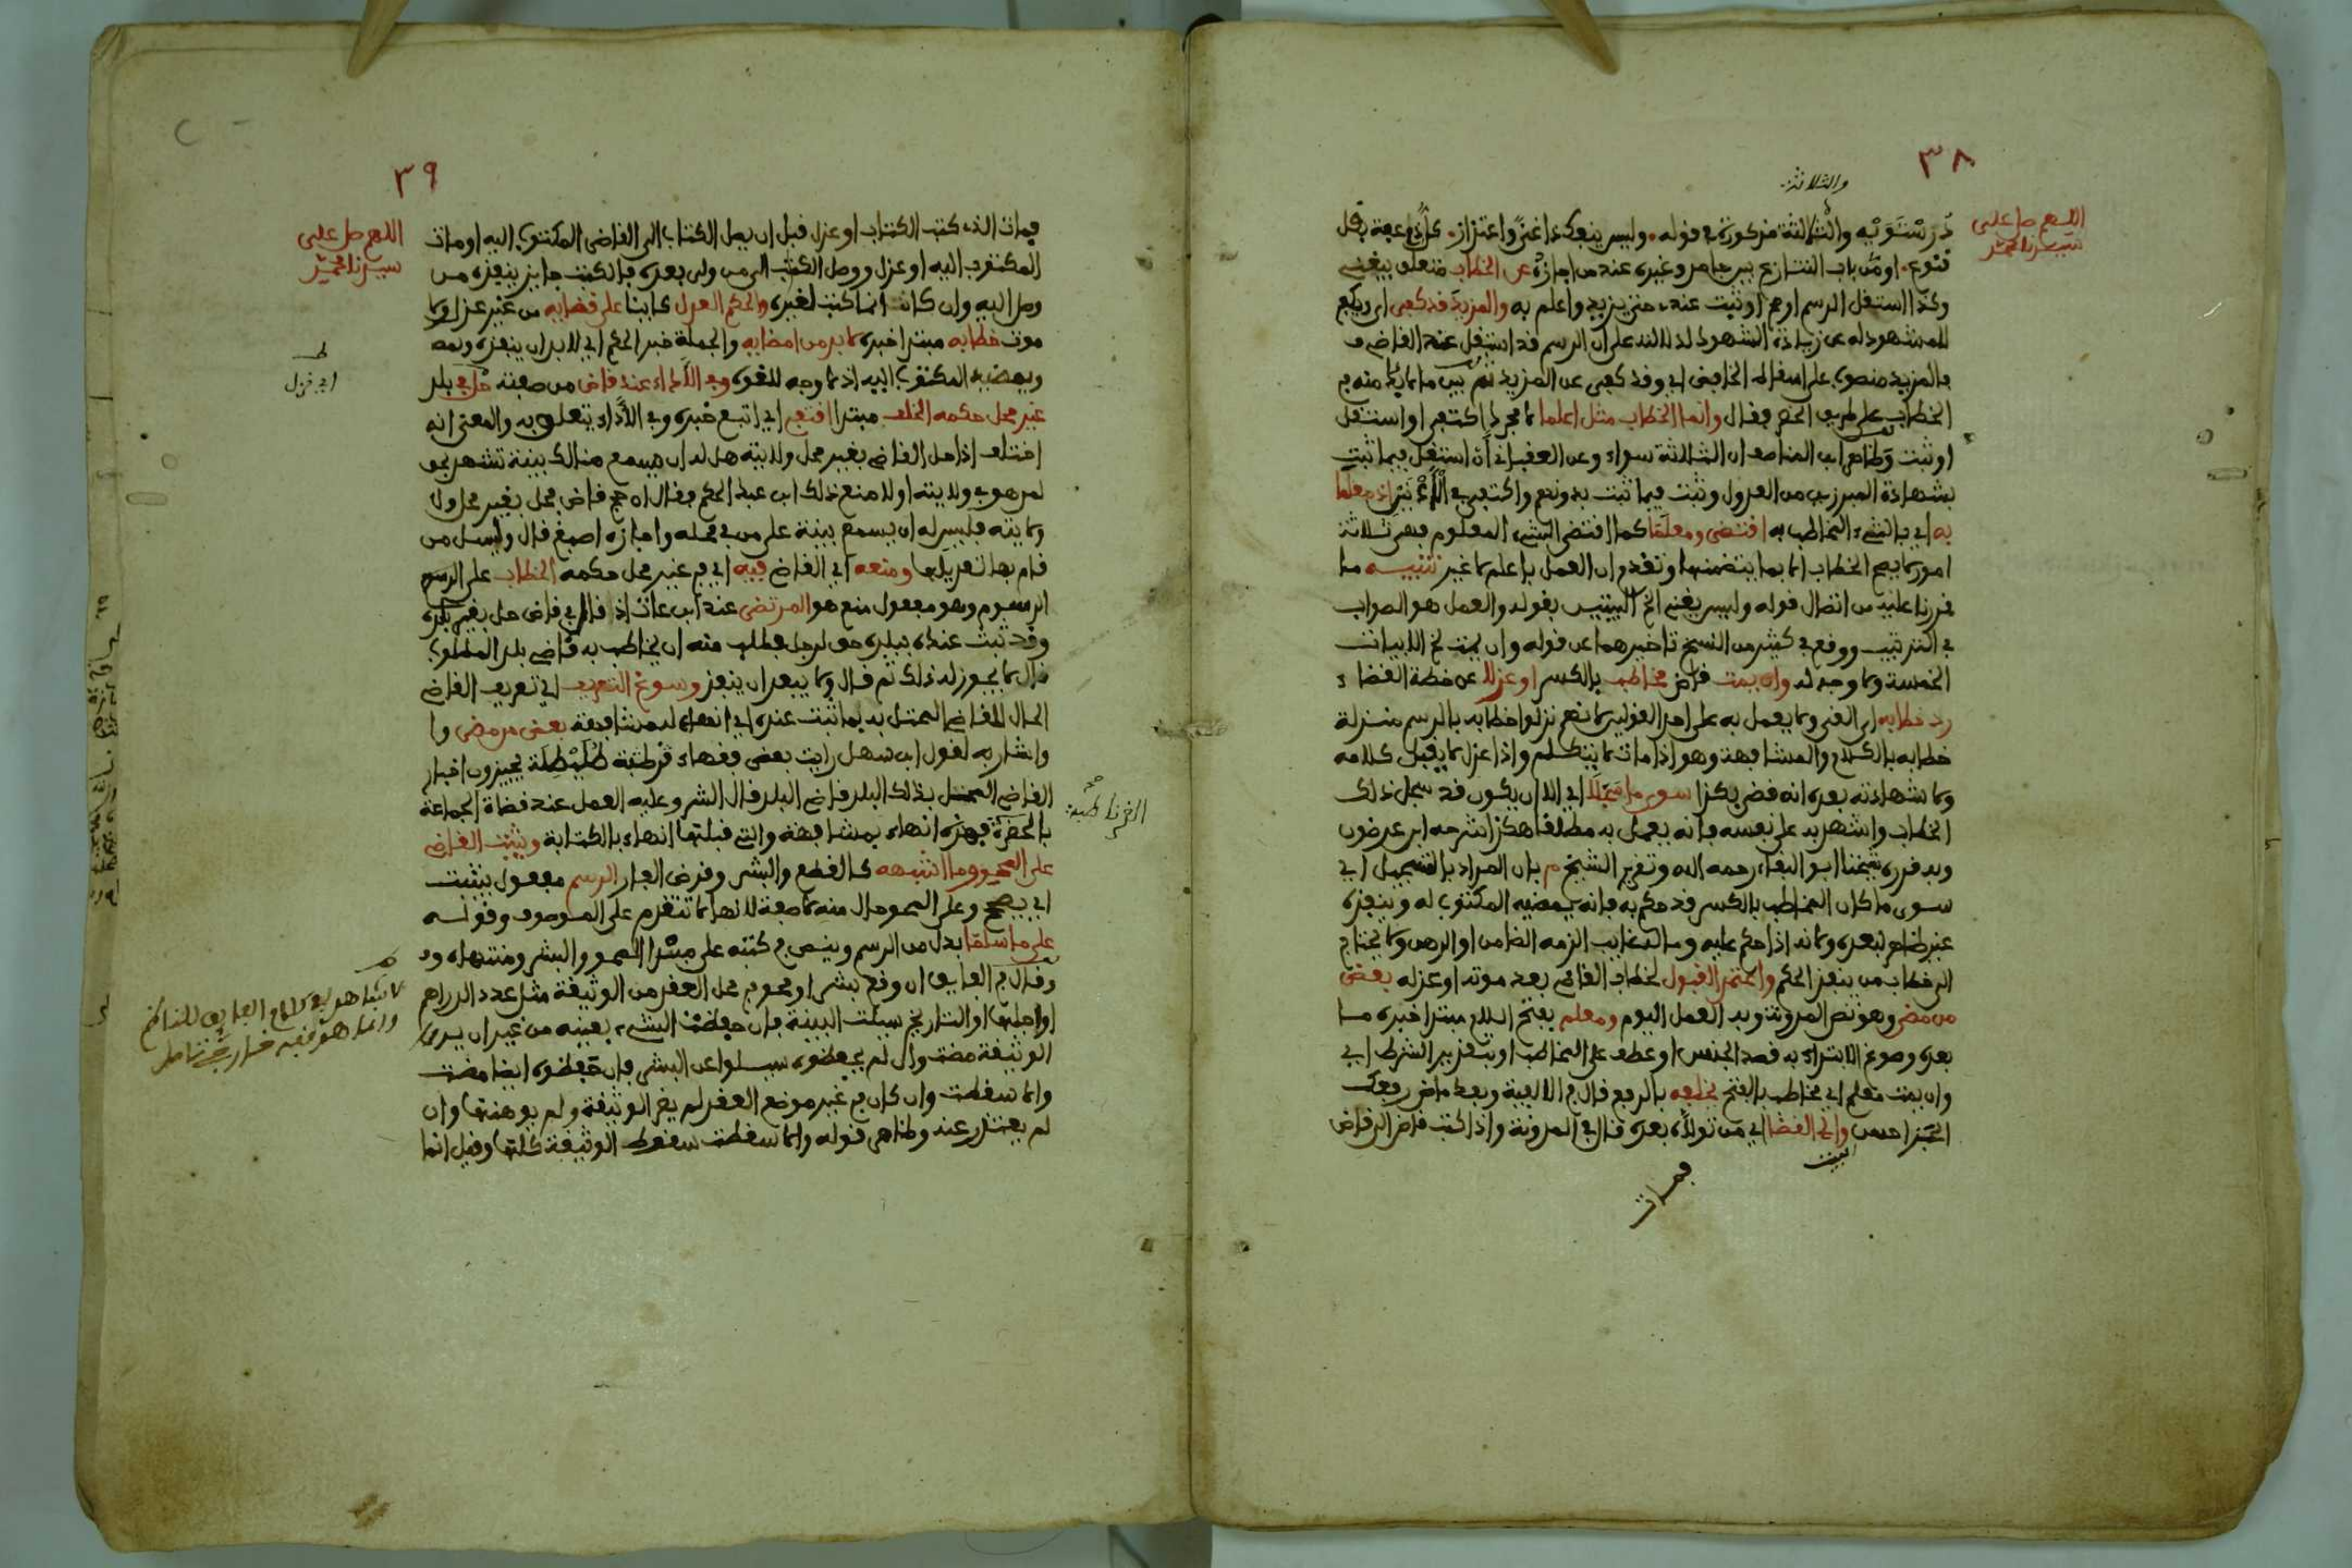 ٣٨
والثلاثة
اللهم صل على
سيدنا محمد
درستويه والثالثة مذكورة في قوله وليس ينفك ذا غنى واعتزاز كل ذي عفة مقل
قنوع او من باب التنازع بين ظاهر وغيره عند من اجازه عن الخطاب متعلق بيغني
وكذا استقل الرسم او صح او ثبت عندي حتى يزيد واعلم به والمزيد قد كفى اي رفع
للمشهود له عن زيادة الشهود لدلالته على ان الرسم قد استقل عند القاضي
فالمزيد منصوب على اسقاط الخافض اي وقد كفى عن المزيد ثم بين ما لا بد منه في
الخطاب على طريق الحصر فقال وانما الخطاب مثل اعلما لا مجرد اكتفى او استقل
او ثبت وظاهر ابن المناصف ان الثلاثة سواء وعن العقباني ان استقل فيما ثبت
بشهادة المبرزين من العدول وثبت فيما ثبت بدونهم واكتفى في الاعم اذ معلما
به اي بالشيء المخاطب به اقتضى ومعلما كما اقتضى الشيء المعلوم فهي ثلاثة
امور لا يصح الخطاب الا بما يتضمنها وتقدم ان العمل باعلم لا غير تنبيه ما
قررنا عليه من اتصال قوله وليس يغني الخ البيتين بقوله والعمل هو الصواب
في الترتيب ووقع في كثير من النسخ تاخيرهما عن قوله وان يمت الخ الابيات
الخمسة ولا وجه له وان يمت قاض مخاطب بالكسر او عزلا عن خطة القضاء
رد خطابه اي الغي ولا يعمل به على احد القولين لانهم نزلوا خطابه بالرسم منزلة
خطابه بالكلام والمشافهة وهو اذا مات لا يتكلم واذا عزل لا يقبل كلامه
ولا شهادته بعده انه قضى بكذا سوى ما سجلا اي الا ان يكون قد سجل ذلك
الخطاب واشهد به على نفسه فانه يعمل به مطلقا هكذا شرحه ابن عرضون
وبه قرره شيخنا ابو البقاء رحمه الله وتقرير الشيخ م بان المراد بالتسجيل اي
سوى ما كان المخاطب بالكسر قد حكم به فانه يمضيه المكتوب له وينفذه
غير ظاهر لبعده ولانه اذا حكم عليه وماله غايب الزمه الضامن او الرهن ولا يحتاج
الى خطاب من ينفذ الحكم واعتمد القبول لخطاب القاضي بعد موته او عزله بعض
من مضى وهو نص المدونة وبه العمل اليوم ومعلم بفتح اللام مبتدا خبره ما
بعده وسوغ الابتداء به قصد الجنس او عطف على المخاطب او بتقدير الشرط اي
وان يمت معلم اي مخاطب بالفتح يخلفه بالرفع قال في الالفية وبعد ماض رفعك
الجزا حسن والي القضا اي من تولاه بعده قال في المدونة واذا كتب قاض الى قاض
فمات
٣٩
اللهم صل على
سيدنا محمد
فمات الذي كتب الكتاب او عزل قبل ان يصل الكتاب الى القاضي المكتوب اليه او مات
المكتوب اليه او عزل ووصل الكتاب الى من ولي بعده فالكتب جايز ينفذه من
وصل اليه وان كان انما كتب لغيره والحكم العدل كاينا على قضايه من غير عزل ولا
موت خطابه مبتدا خبره لا بد من امضايه والجملة خبر الحكم اي لا بد ان ينفذه ويمضه
ويمضيه المكتوب اليه اذ لا وجه للغوه وفي الاداء عند قاض من صفته حل في بلد
غير محل حكمه الخلف مبتدا اقتفي اي اتبع خبره وفي الاداء يتعلق به والمعنى انه
اختلف اذا حل القاضي بغير محل ولايته هل له ان يسمع هنالك بينة تشهد بحق
لمن هو في ولايته او لا منع ذلك ابن عبد الحكم فقال ان حج قاض فحل بغير محل ولا
ولايته فليس له ان يسمع بينة على من في محله واجازه اصبغ قال وليسل من
قام بها تعديلها ومنعه اي القاضي فيه اي في غير محل حكمه الخطاب على الرسم
المرسوم وهو مفعول منع هو المرتضى عند ابن عات اذ قال في قاض حل بغير بلده
وقد ثبت عنده ببلده حق لرجل فطلب منه ان يخاطب به قاضي بلد المطلوب
قال لا يجوز له ذلك ثم قال ولا يبعد ان ينفذ وسوغ التعريف اي تعريف القاضي
الحال للقاضي المحتل به بما ثبت عنده اي انهاءه له مشافهة بعض من مضى وا
واشار به لقول ابن سهل رايت بعض فقهاء قرطبة طليطلة يجيزون اخبار
القاضي المحتل بذلك البلد قاضي البلد قال الشر وعليه العمل عند قضاة الجماعة
بالحضرة فهذه انهاء بمشافهة والتي قبلتها انهاء بالكتابة ويثبت القاضي
على المحو وما اشبهه كالقطع والبشر وقرض الفار الرسم مفعول يثبت
اي يصحح وعلى المحو حال منه لا صفة لانها لا تتقدم على الموصوف وقوله
على ما سلما بدل من الرسم وينص في كتبه على مبتدا المحو والبشر ومنتهاه
وقال في الفايق ان وقع بشر او محو في محل العقد من الوثيقة مثل عدد الدراهم
او اجلها او التاريخ سيلت البينة فان حفظت الشيء بعينه من غير ان يرى
الوثيقة مضت وان لم يحفظوه سيلوا عن البشر فان حفظوه ايضا مضت
والا سقطت وان كان في غير موضع العقد لم يضر الوثيقة ولم يوهنها وان
لم يعتذر عنه وظاهر قوله والا سقطت سقوط الوثيقة كلها وقيل انما
الغرناطية